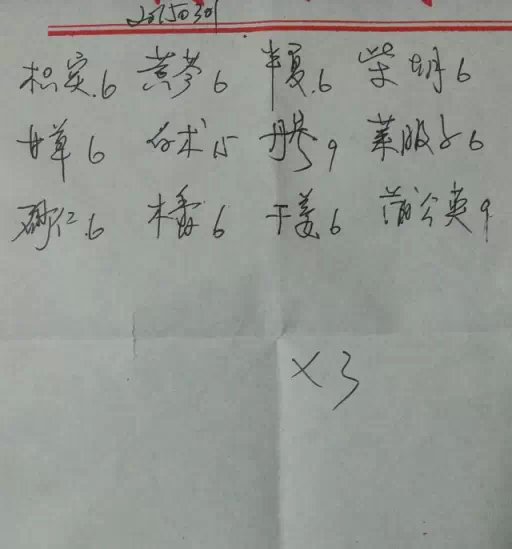 20150301
枳实.6 黄芩6 半夏.6 柴胡6
甘草6 白术15 丹参9 莱服子6
砂仁.6 木香6 干姜6 蒲公英9
×3